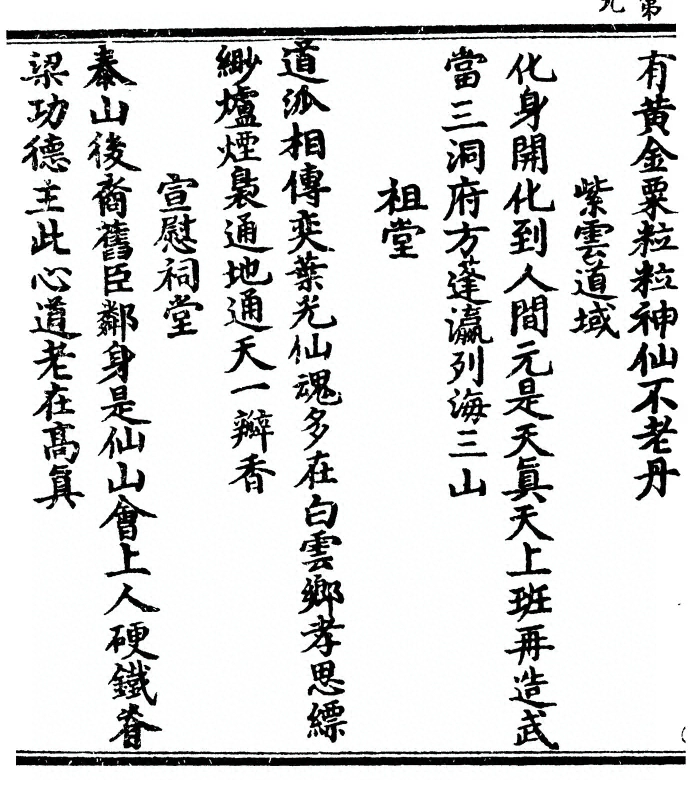 第
九
有黄金粟粒粒神仙不老丹
紫雲道域
化身開化到人間元是天眞天上班再造武
當三洞府方蓬瀛列海三山
祖堂
道派相傳奕葉光仙魂多在白雲鄉孝思縹
緲爐煙裊通地通天一瓣香
宣慰祠堂
泰山後裔舊臣鄰身是仙山會上人硬鐵脊
梁功德主此心道老在高眞